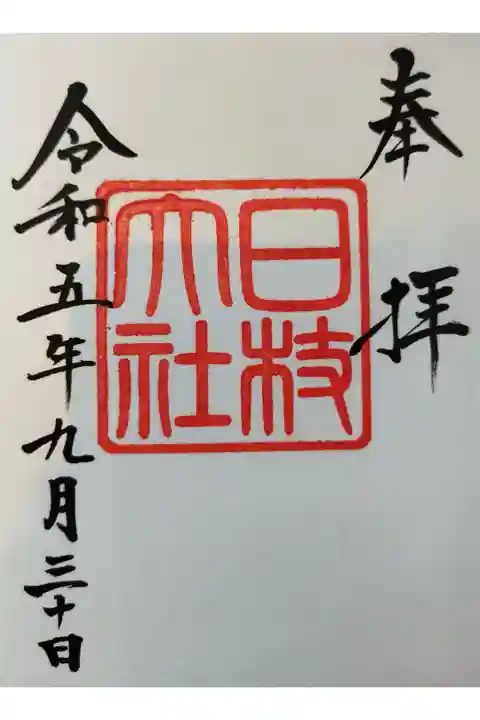 奉拝
日枝
大社
令和五年九月三十日